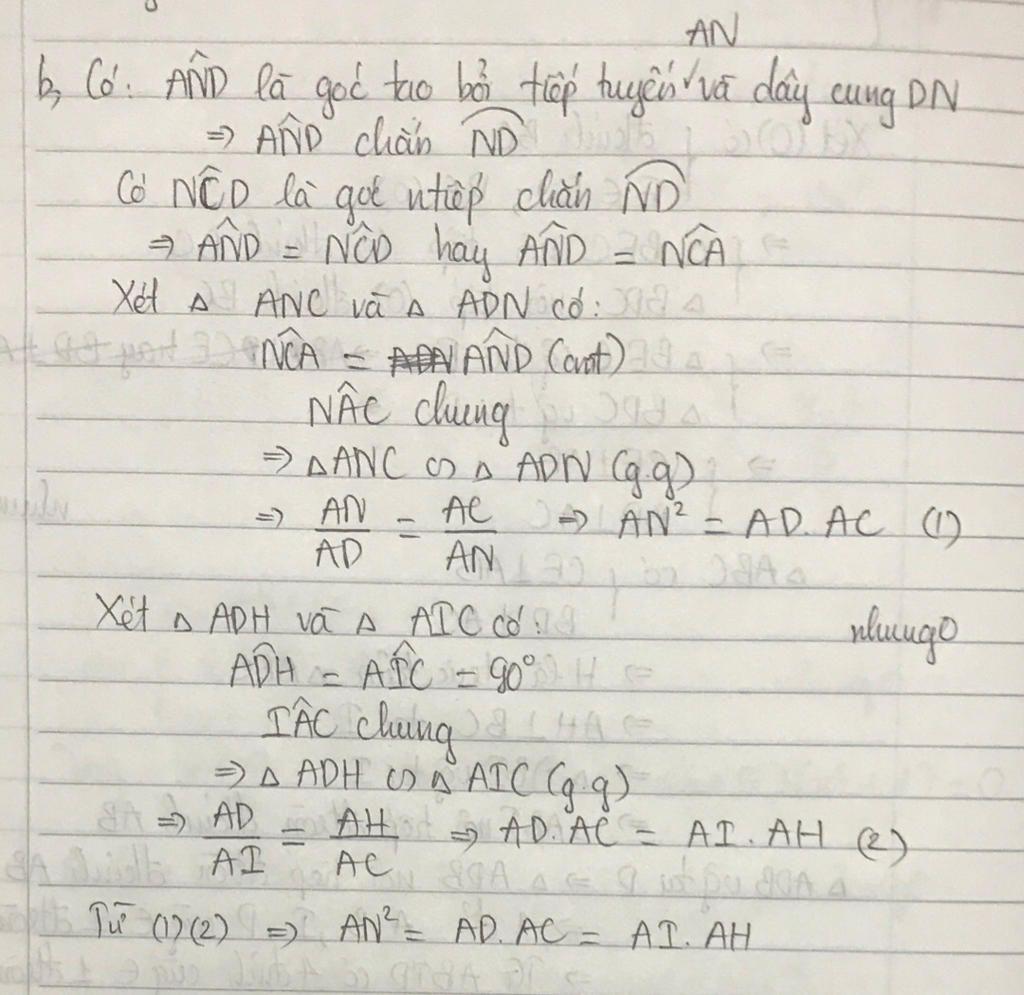 AN
b, Có: AN̂D là góc tạo bởi tiếp tuyến √ và dây cung DN
⇒ AN̂D chắn N͡D
Có NĈD là góc ntiếp chắn N͡D
⇒ AN̂D = NĈD hay AN̂D = NĈA
Xét △ ANC và △ ADN có:
NĈA = AN̂D (cmt)
NÂC chung
⇒ △ANC ∽ △ ADN (g.g)
⇒ AN/AD = AC/AN ⇒ AN² = AD.AC (1)
Xét △ ADH và △ AIC có:
nhungo
AD̂H = AÎC = 90°
IÂC chung
⇒ △ ADH ∽ △ AIC (g.g)
⇒ AD/AI = AH/AC ⇒ AD.AC = AI.AH (2)
Từ (1)(2) ⇒ AN² = AD.AC = AI.AH